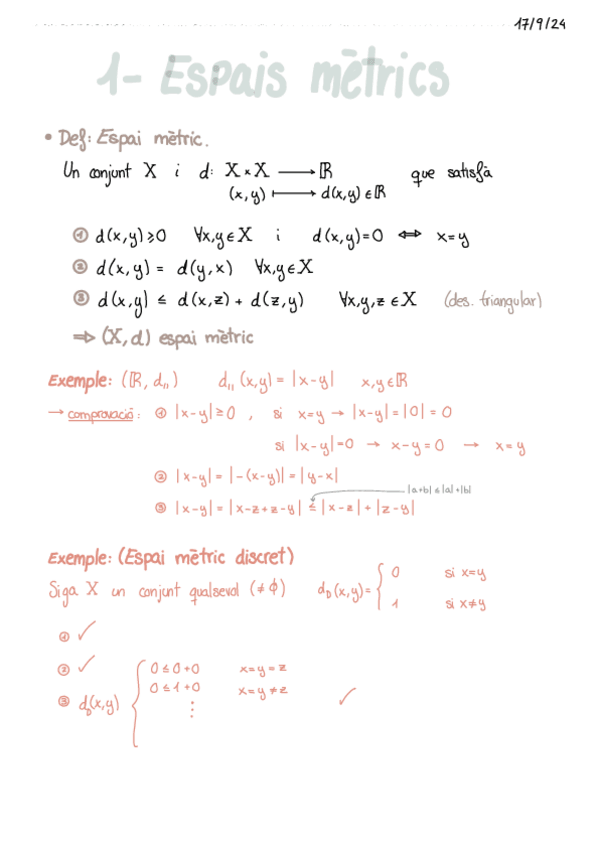 17/9/24
1- Espais mètrics
• Def: Espai mètric.
Un conjunt X i d: X × X ⟶ ℝ que satisfà
(x,y) ⟼ d(x,y) ∈ ℝ
① d(x,y) ≥ 0 ∀x,y ∈ X i d(x,y) = 0 ⟺ x=y
② d(x,y) = d(y,x) ∀x,y ∈ X
③ d(x,y) ≤ d(x,z) + d(z,y) ∀x,y,z ∈ X (des. triangular)
⇒ (X,d) espai mètric
Exemple: (ℝ, d₁₁) d₁₁(x,y) = |x-y| x,y ∈ ℝ
→ comprovació: ① |x-y| ≥ 0 , si x=y → |x-y| = |0| = 0
si |x-y|=0 → x-y=0 → x=y
② |x-y| = |-(x-y)| = |y-x|
|a+b| ≤ |a|+|b|
③ |x-y| = |x-z+z-y| ≤ |x-z| + |z-y|
Exemple: (Espai mètric discret)
Siga X un conjunt qualsevol (≠∅) d_D(x,y) = { 0 si x=y
1 si x≠y
① ✓
② ✓
③ d_D(x,y) { 0 ≤ 0+0 x=y=z
0 ≤ 1+0 x=y≠z ✓
⋮